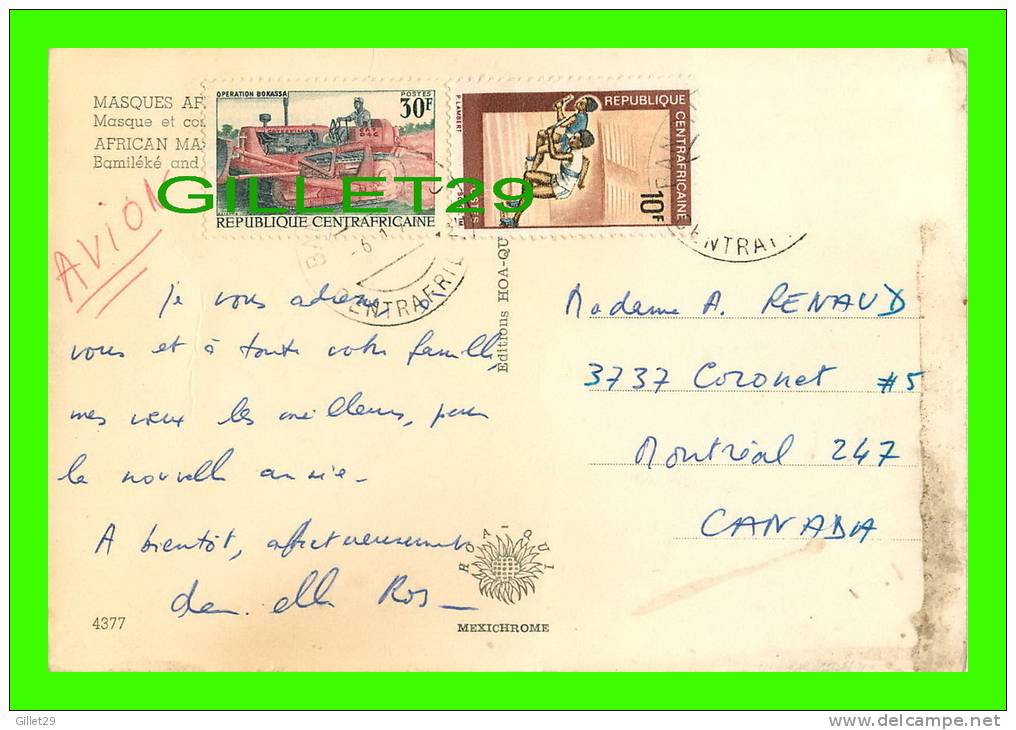 MASQUES AF
Masque et co
AFRICAN MA
Bamiléké and
OPERATION BOKASSA
POSTES
30F
CATERPILLAR
REPUBLIQUE CENTRAFRICAINE
REPUBLIQUE
CENTRAFRICAINE
10F
P. LAMBERT
GILLET29
AVION
CENTRAFRI
CENTRAF
Editions HOA-QU
Je vous adresse, à
vous et à toute votre famille,
mes vœux les meilleurs, pour
la nouvelle année.
A bientôt, affectueusement
Ros
Madame A. RENAUD
3737 Coronet #5
Montréal 247
CANADA
HOA-QUI
4377
MEXICHROME
Gillet29
http://www.delcampe.net